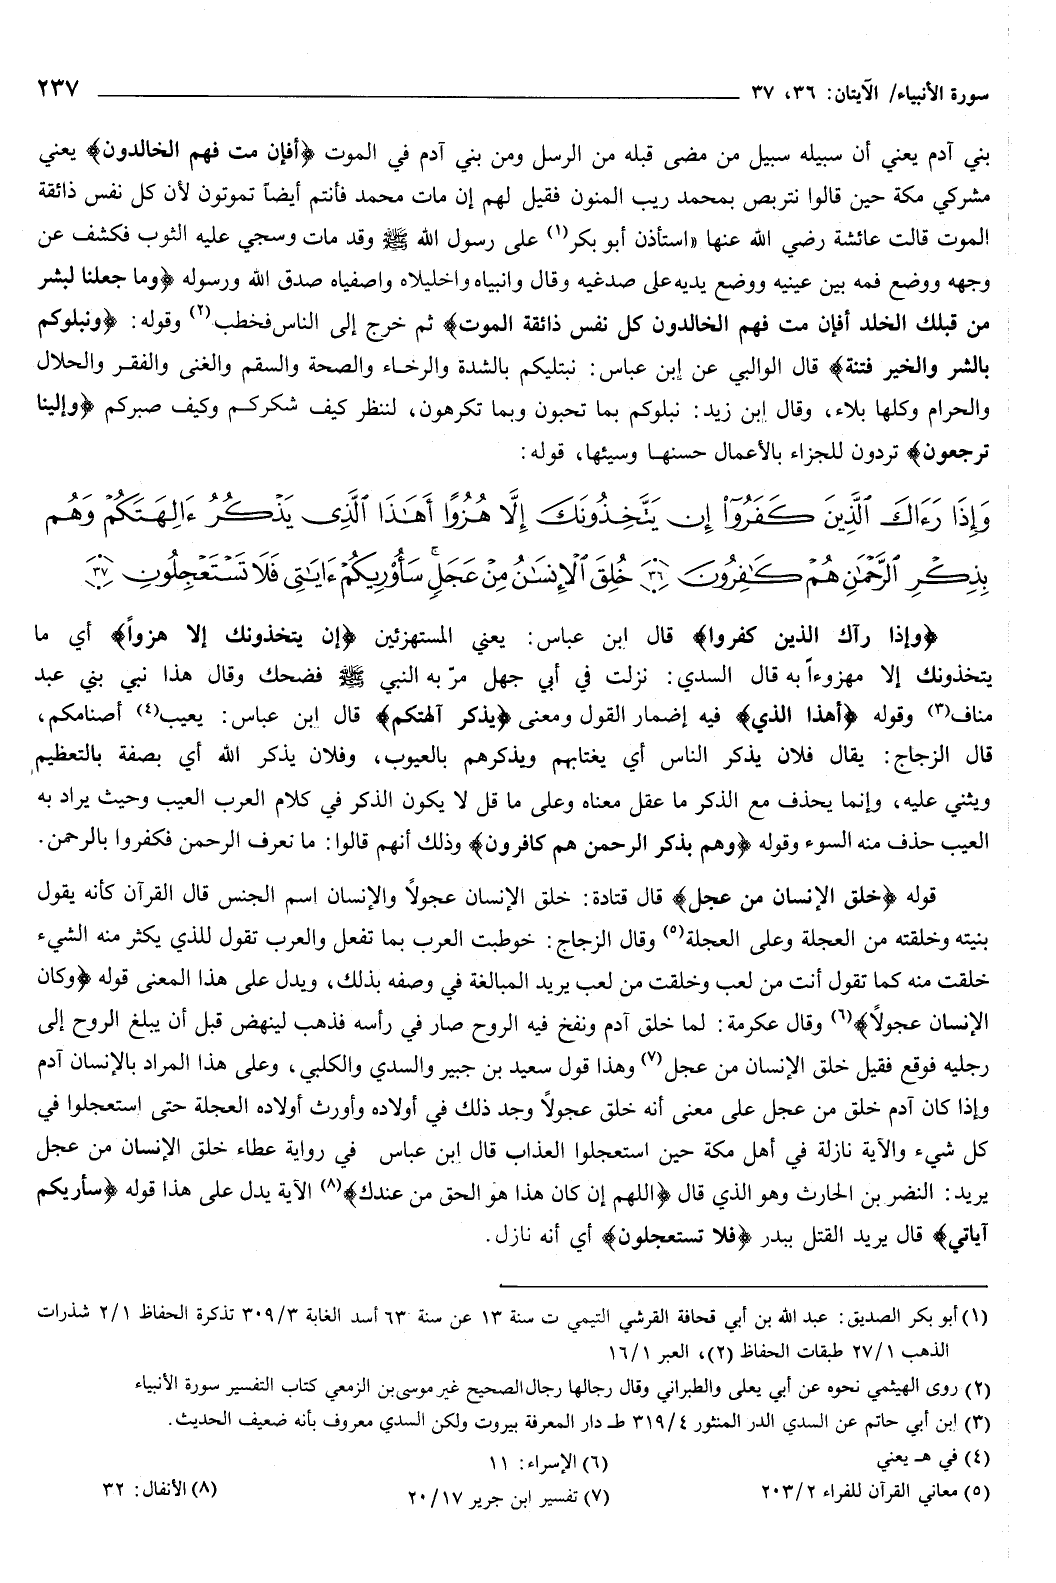 سورة الأنبياء/ الآيتان: ٣٦، ٣٧ ٢٣٧
بني آدم يعني أن سبيله سبيل من مضى قبله من الرسل ومن بني آدم في الموت ﴿أفإن مت فهم الخالدون﴾ يعني
مشركي مكة حين قالوا نتربص بمحمد ريب المنون فقيل لهم إن مات محمد فأنتم أيضاً تموتون لأن كل نفس ذائقة
الموت قالت عائشة رضي الله عنها «استأذن أبو بكر(١) على رسول الله ﷺ وقد مات وسجي عليه الثوب فكشف عن
وجهه ووضع فمه بين عينيه ووضع يديه على صدغيه وقال وانبياه واخليلاه واصفياه صدق الله ورسوله ﴿وما جعلنا لبشر
من قبلك الخلد أفإن مت فهم الخالدون كل نفس ذائقة الموت﴾ ثم خرج إلى الناس فخطب(٢) وقوله: ﴿ونبلوكم
بالشر والخير فتنة﴾ قال الوالبي عن إبن عباس: نبتليكم بالشدة والرخاء والصحة والسقم والغنى والفقر والحلال
والحرام وكلها بلاء، وقال إبن زيد: نبلوكم بما تحبون وبما تكرهون، لننظر كيف شكركم وكيف صبركم ﴿وإلينا
ترجعون﴾ تردون للجزاء بالأعمال حسنها وسيئها، قوله:
وَإِذَا رَءَاكَ ٱلَّذِينَ كَفَرُوٓا۟ إِن يَتَّخِذُونَكَ إِلَّا هُزُوًا أَهَـٰذَا ٱلَّذِى يَذْكُرُ ءَالِهَتَكُمْ وَهُم
بِذِكْرِ ٱلرَّحْمَـٰنِ هُمْ كَـٰفِرُونَ ٣٦ خُلِقَ ٱلْإِنسَـٰنُ مِنْ عَجَلٍ ۚ سَأُو۟رِيكُمْ ءَايَـٰتِى فَلَا تَسْتَعْجِلُونِ ٣٧
﴿وإذا رآك الذين كفروا﴾ قال ابن عباس: يعني المستهزئين ﴿إن يتخذونك إلا هزواً﴾ أي ما
يتخذونك إلا مهزوءاً به قال السدي: نزلت في أبي جهل مرّ به النبي ﷺ فضحك وقال هذا نبي بني عبد
مناف(٣) وقوله ﴿أهذا الذي﴾ فيه إضمار القول ومعنى ﴿يذكر آلهتكم﴾ قال ابن عباس: يعيب(٤) أصنامكم،
قال الزجاج: يقال فلان يذكر الناس أي يغتابهم ويذكرهم بالعيوب، وفلان يذكر الله أي بصفة بالتعظيم
ويثني عليه، وإنما يحذف مع الذكر ما عقل معناه وعلى ما قل لا يكون الذكر في كلام العرب العيب وحيث يراد به
العيب حذف منه السوء وقوله ﴿وهم بذكر الرحمن هم كافرون﴾ وذلك أنهم قالوا: ما نعرف الرحمن فكفروا بالرحمن.
قوله ﴿خلق الإنسان من عجل﴾ قال قتادة: خلق الإنسان عجولاً والإنسان اسم الجنس قال القرآن كأنه يقول
بنيته وخلقته من العجلة وعلى العجلة(٥) وقال الزجاج: خوطبت العرب بما تفعل والعرب تقول للذي يكثر منه الشيء
خلقت منه كما تقول أنت من لعب وخلقت من لعب يريد المبالغة في وصفه بذلك، ويدل على هذا المعنى قوله ﴿وكان
الإنسان عجولاً﴾(٦) وقال عكرمة: لما خلق آدم ونفخ فيه الروح صار في رأسه فذهب لينهض قبل أن يبلغ الروح إلى
رجليه فوقع فقيل خلق الإنسان من عجل(٧) وهذا قول سعيد بن جبير والسدي والكلبي، وعلى هذا المراد بالإنسان آدم
وإذا كان آدم خلق من عجل على معنى أنه خلق عجولاً وجد ذلك في أولاده وأورث أولاده العجلة حتى استعجلوا في
كل شيء والآية نازلة في أهل مكة حين استعجلوا العذاب قال إبن عباس في رواية عطاء خلق الإنسان من عجل
يريد: النضر بن الحارث وهو الذي قال ﴿اللهم إن كان هذا هو الحق من عندك﴾(٨) الآية يدل على هذا قوله ﴿سأريكم
آياتي﴾ قال يريد القتل ببدر ﴿فلا تستعجلون﴾ أي أنه نازل.
(١) أبو بكر الصديق: عبد الله بن أبي قحافة القرشي التيمي ت سنة ١٣ عن سنة ٦٣ أسد الغابة ٣٠٩/٣ تذكرة الحفاظ ٢/١ شذرات
الذهب ٢٧/١ طبقات الحفاظ (٢)، العبر ١٦/١
(٢) روى الهيثمي نحوه عن أبي يعلى والطبراني وقال رجالها رجال الصحيح غير موسى بن الزمعي كتاب التفسير سورة الأنبياء
(٣) ابن أبي حاتم عن السدي الدر المنثور ٣١٩/٤ طـ دار المعرفة بيروت ولكن السدي معروف بأنه ضعيف الحديث.
(٤) في هـ يعني (٦) الإسراء: ١١
(٥) معاني القرآن للفراء ٢٠٣/٢ (٧) تفسير ابن جرير ٢٠/١٧ (٨) الأنفال: ٣٢